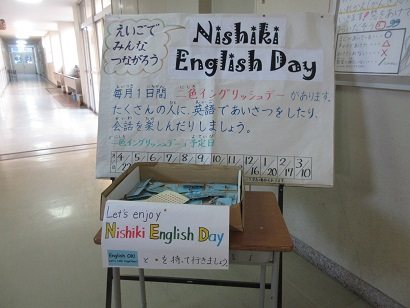 えいごで
みんな
つながろう
Nishiki
English Day
毎月1日間 二色イングリッシュデーがあります。
たくさんの人に、英語であいさつをしたり、
会話を楽しんだりしましょう。
二色イングリッシュデー予定日
4/ 5/ 6/ 7/ 8/ 9/ 10/ 11/ 12/ 1/ 2/ 3/
16 20 10
Let's enjoy
Nishiki English Day
English OK!
と を持って行きましょう